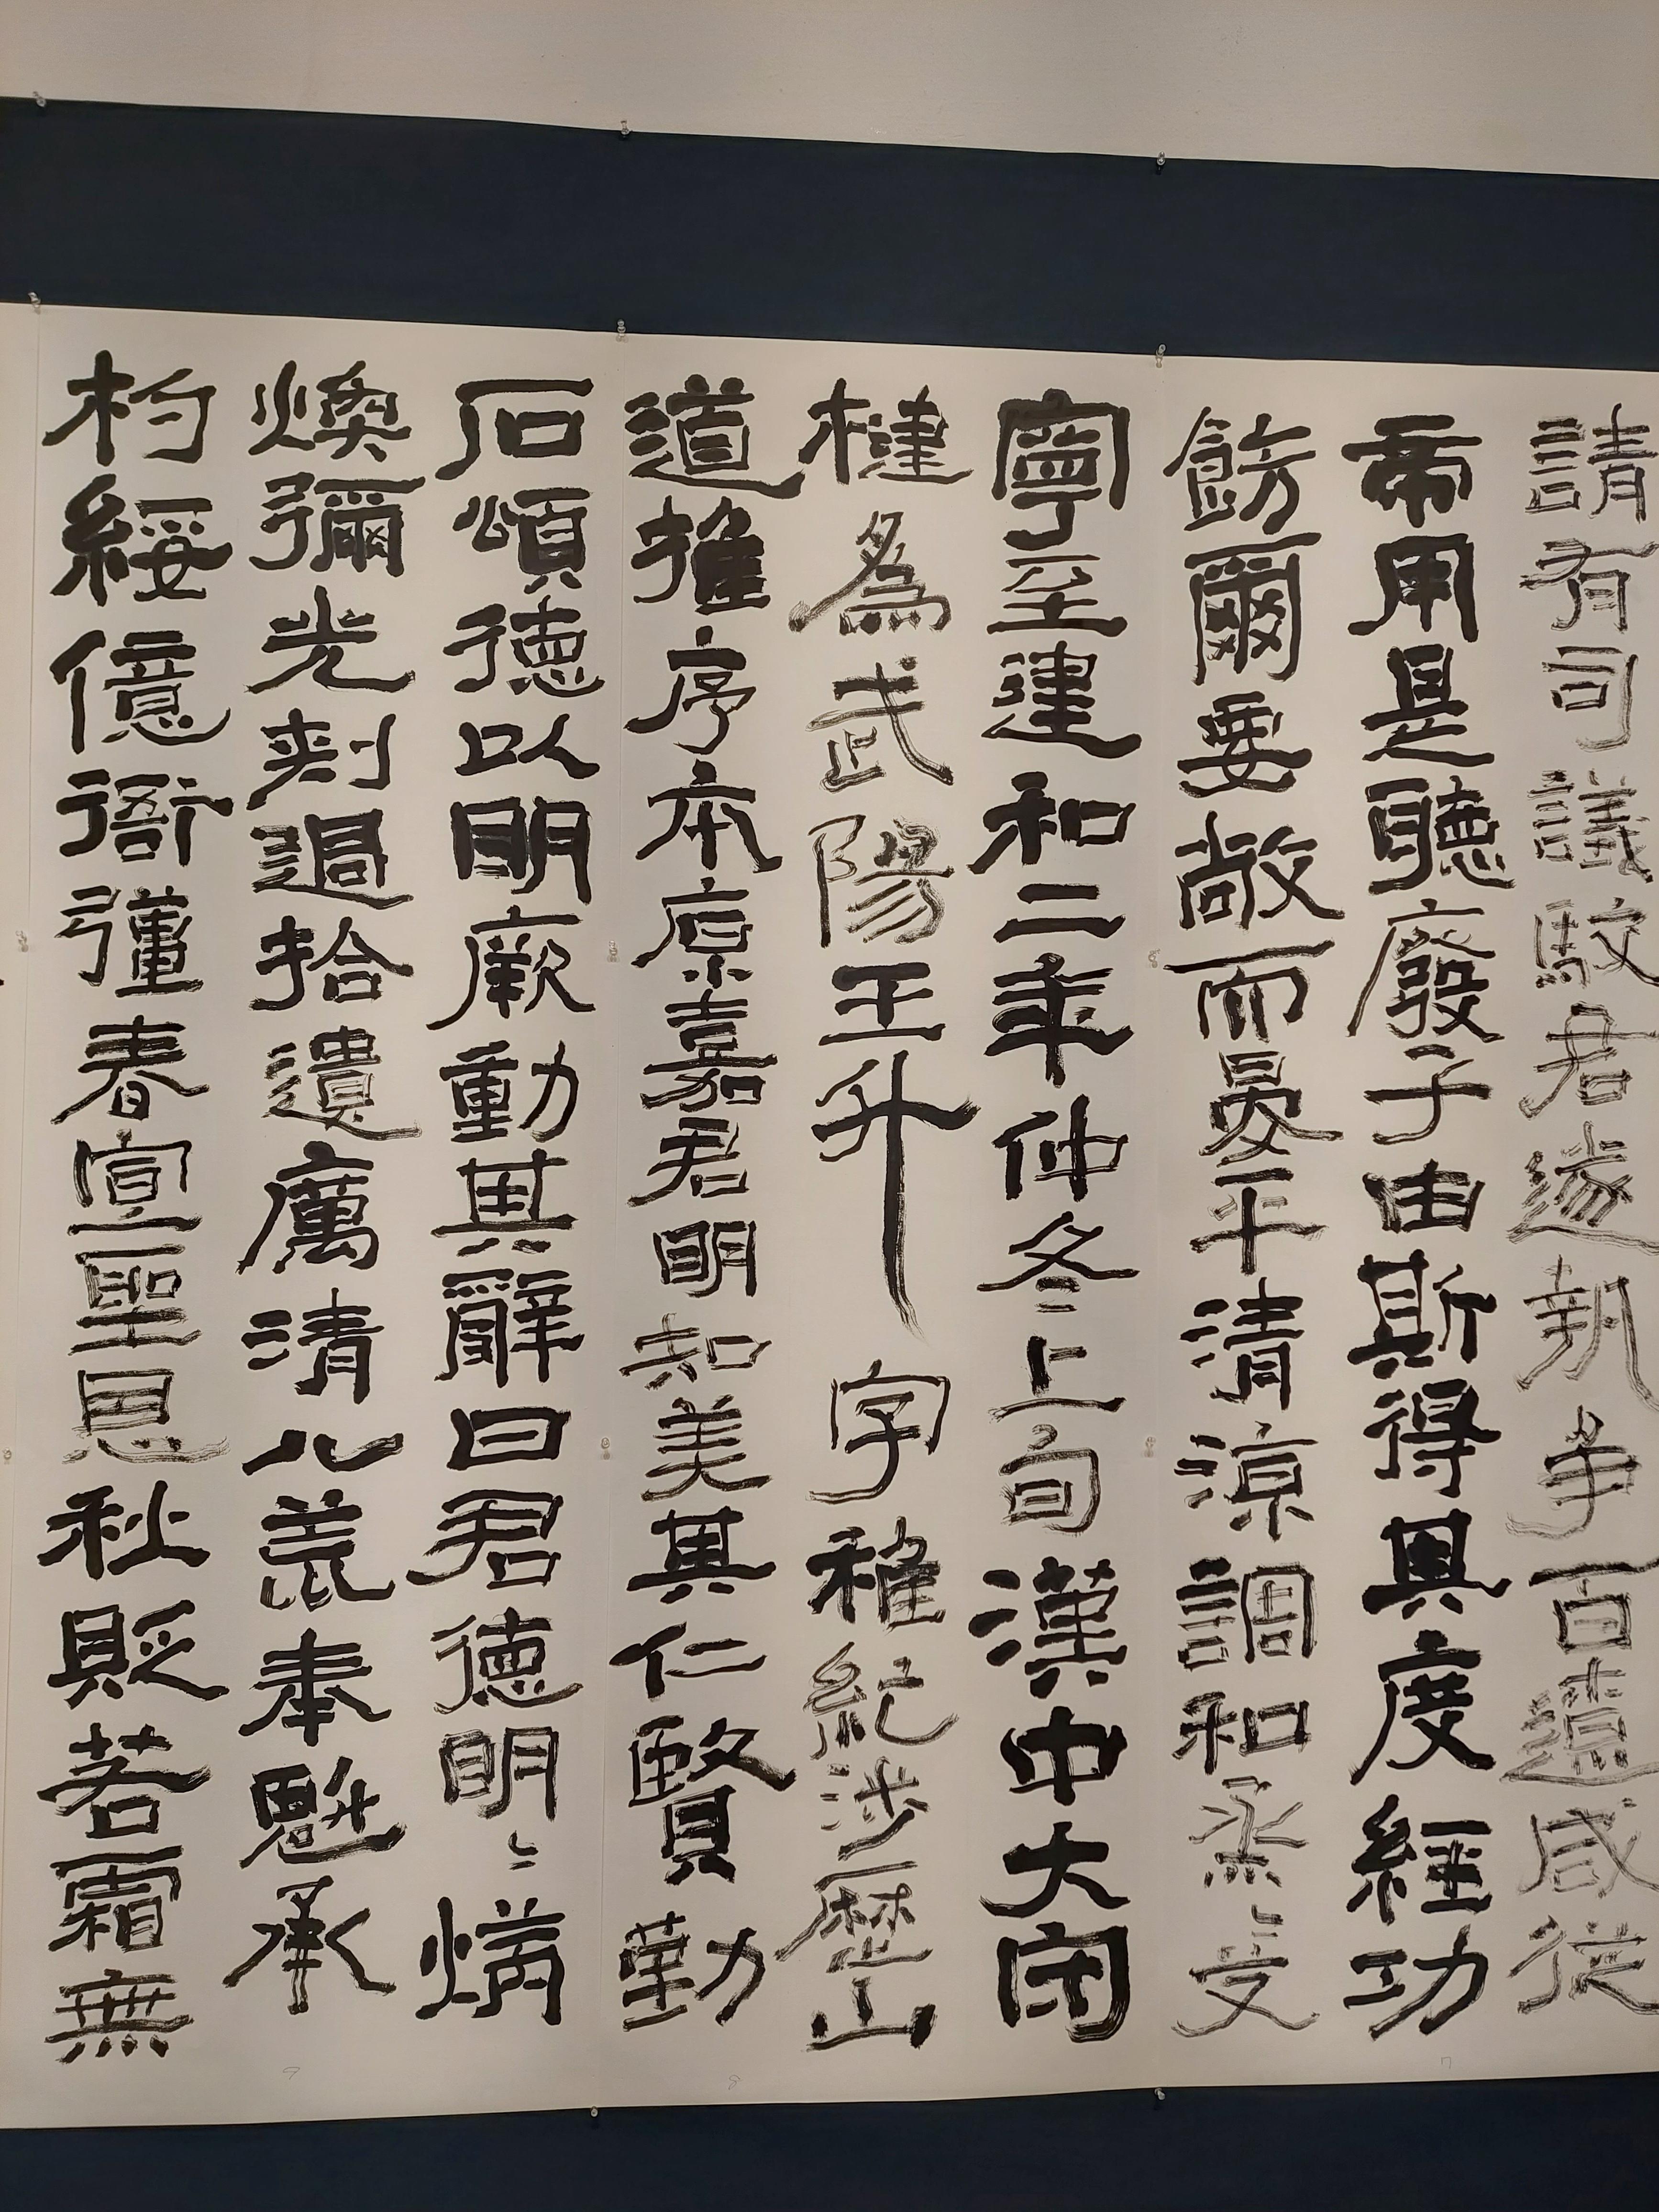 請有司議駮君遂執爭百遼咸從
帝用是聽廢子由斯得其度經功
飭爾要敞而晏平清涼調和烝〻艾
寧至建和二年仲冬上旬漢中大守
楗為武陽王升字稚紀涉歷山
道推序本原嘉君明知美其仁賢勒
石頌德以明厥勳其辭曰君德明〻炳
煥彌光刺過拾遺厲清八荒奉魁承
杓綏億衙彊春宣聖恩秋貶若霜無